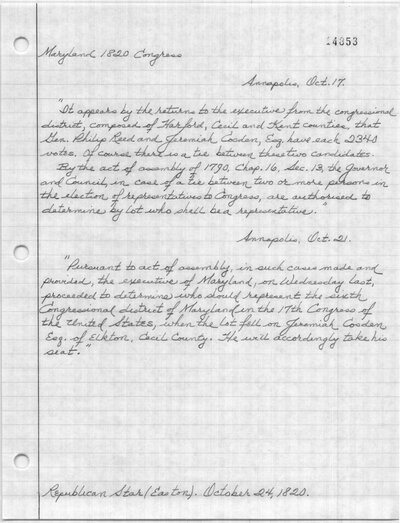 14853
Maryland 1820 Congress
Annapolis, Oct. 17.
"It appears by the returns to the executive from the congressional
district, composed of Harford, Cecil and Kent counties, that
Gen. Philip Reed and Jeremiah Cosden, Esq. have each 2340
votes. Of course there is a tie between these two candidates.
By the act of assembly of 1790, Chap. 16, Sec. 13, the Governor
and Council, in case of a tie between two or more persons in
the election of representatives to Congress, are authorised to
determine by lot who shall be a representative."
Annapolis, Oct. 21.
"Pursuant to act of assembly, in such cases made and
provided, the executive of Maryland, on Wednesday last,
proceeded to determine who should represent the sixth
Congressional district of Maryland in the 17th Congress of
the United States, when the lot fell on Jeremiah Cosden
Esq. of Elkton, Cecil County. He will accordingly take his
seat."
Republican Star (Easton). October 24, 1820.